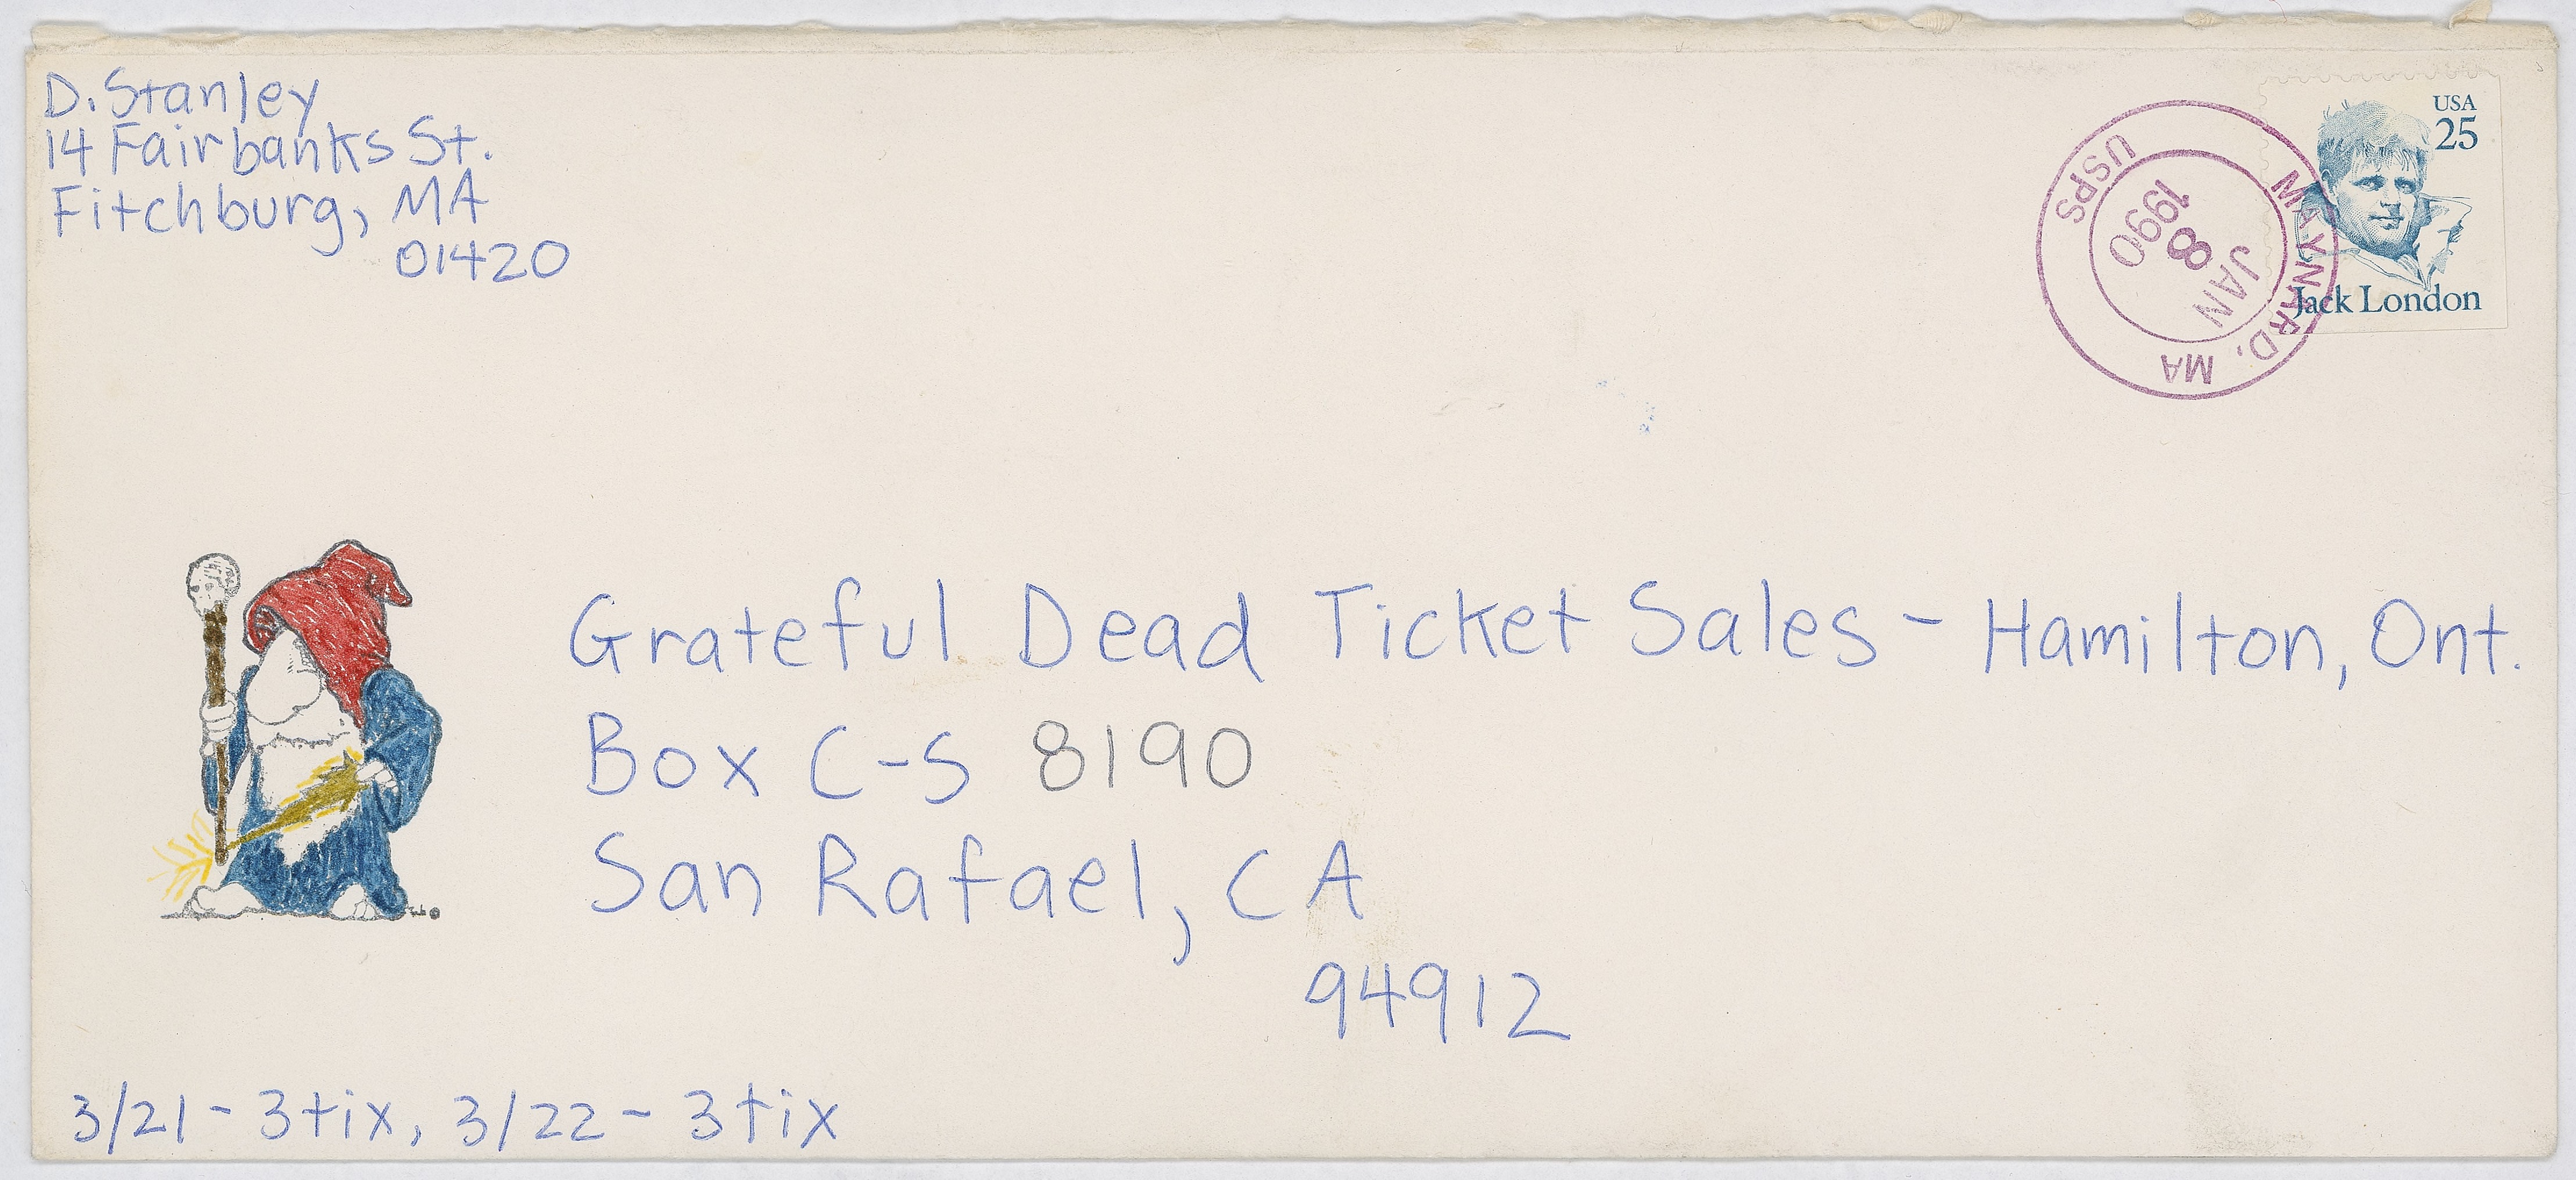 D. Stanley
14 Fairbanks St.
Fitchburg, MA
01420
USA
25
Jack London
MAYNARD, MA
JAN
8
1990
USPS
Grateful Dead Ticket Sales - Hamilton, Ont.
Box C-S 8190
San Rafael, CA
94912
3/21 - 3 tix, 3/22 - 3 tix